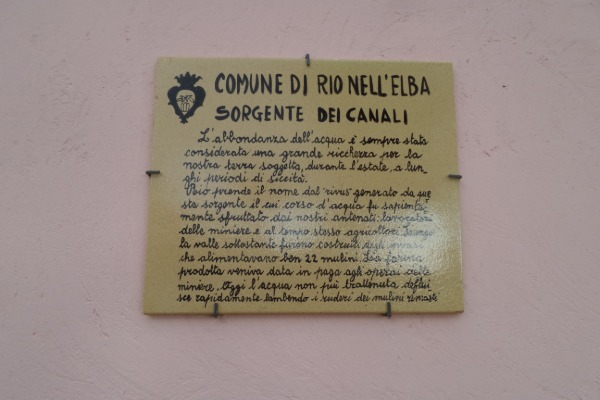 COMUNE DI RIO NELL'ELBA
SORGENTE DEI CANALI
L'abbondanza dell'acqua è sempre stata
considerata una grande ricchezza per la
nostra terra soggetta, durante l'estate, a lun-
ghi periodi di siccità.
Rio prende il nome dal "rivus" generato da que
sta sorgente il cui corso d'acqua fu sapiente-
mente sfruttato dai nostri antenati: lavoratori
delle miniere e al tempo stesso agricoltori. Lungo
la valle sottostante furono costruiti degli invasi
che alimentavano ben 22 mulini. La farina
prodotta veniva data in paga agli operai delle
miniere. Oggi l'acqua non più trattenuta deflui
sce rapidamente lambendo i ruderi dei mulini rimasti